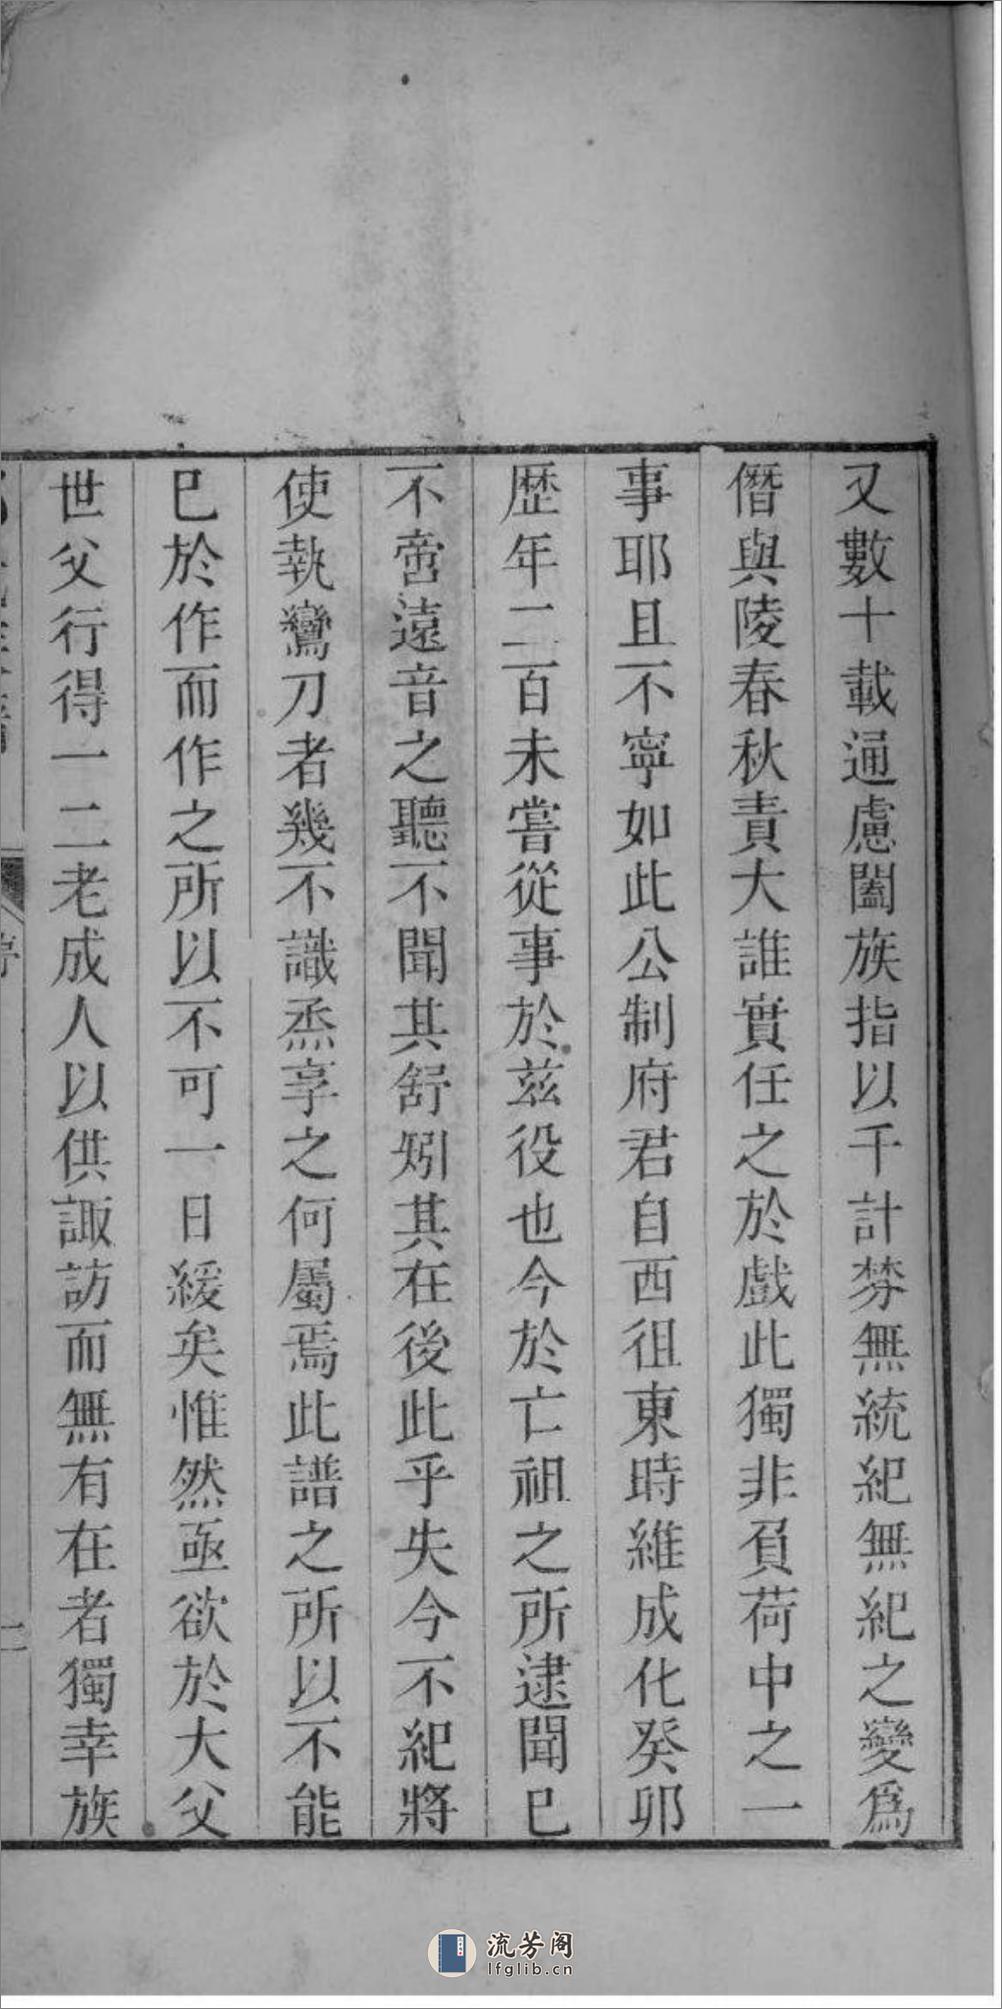 又數十載通慮闔族指以千計棼無統紀無紀之變爲
僭與陵春秋責大誰實任之於戲此獨非負荷中之一
事耶且不寧如此公制府君自西徂東時維成化癸卯
歴年二百未嘗從事於兹役也今於亡祖之所逮聞巳
不啻遠音之聽不聞其舒矧其在後此乎失今不紀將
使執鸞刀者幾不識烝享之何屬焉此譜之所以不能
巳於作而作之所以不可一日緩矣惟然亟欲於大父
世父行得一二老成人以供諏訪而無有在者獨幸族
序
二
流芳阁
lfglib.cn